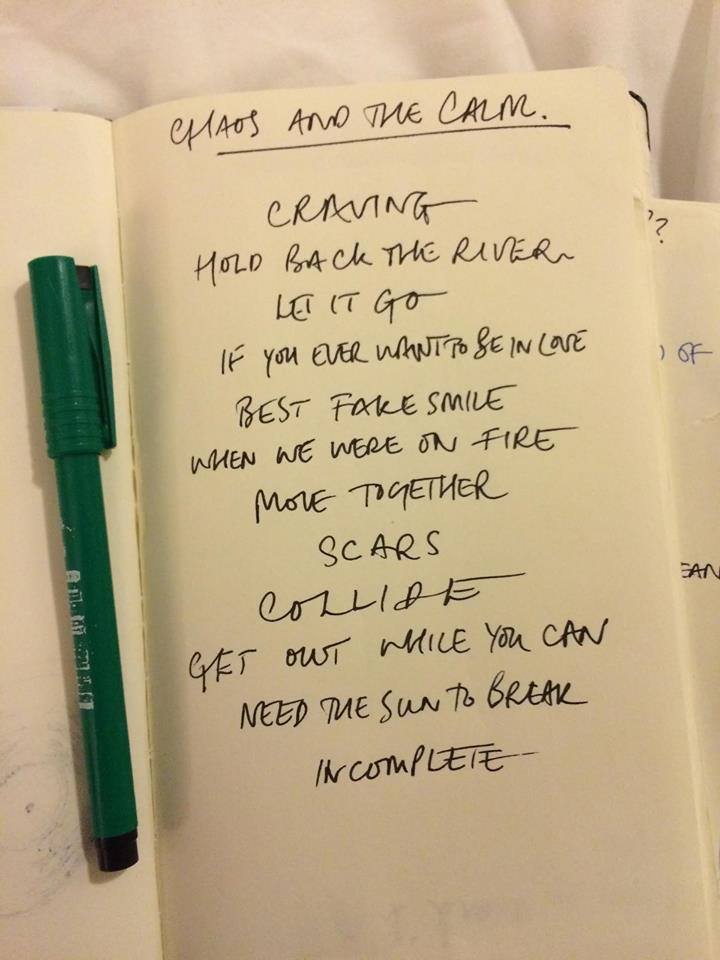 CHAOS AND THE CALM.
CRAVING
HOLD BACK THE RIVER
LET IT GO
IF YOU EVER WANT TO BE IN LOVE
BEST FAKE SMILE
WHEN WE WERE ON FIRE
MOVE TOGETHER
SCARS
COLLIDE
GET OUT WHILE YOU CAN
NEED THE SUN TO BREAK
INCOMPLETE
?
OF
EAN